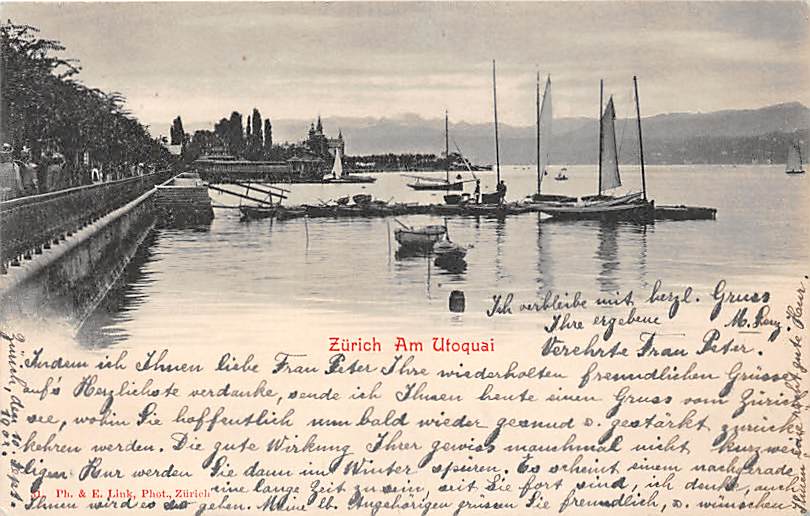 Zürich Am Utoquai
Zürich, den 10. Sept. 1901.
Verehrte Frau Peter.
Indem ich Ihnen liebe Frau Peter Ihre wiederholten freundlichen Grüsse
auf's Herzlichste verdanke, sende ich Ihnen heute einen Gruss vom Zürich
see, wohin Sie hoffentlich nun bald wieder gesund u. gestärkt zurück
kehren werden. Die gute Wirkung Ihrer gewiss manchmal nicht kurzwe
ligen Kur werden Sie dann im Winter spüren. Es scheint einem nachgerade
eine lange Zeit zu sein, seit Sie fort sind, ich denke, auch
Ihnen wird es so gehen. Meine lb. Angehörigen grüssen Sie freundlich, u. wünschen
gute Kur.
Ich verbleibe mit herzl. Gruss
Ihre ergebene
M.
Ph. & E. Link, Phot., Zürich